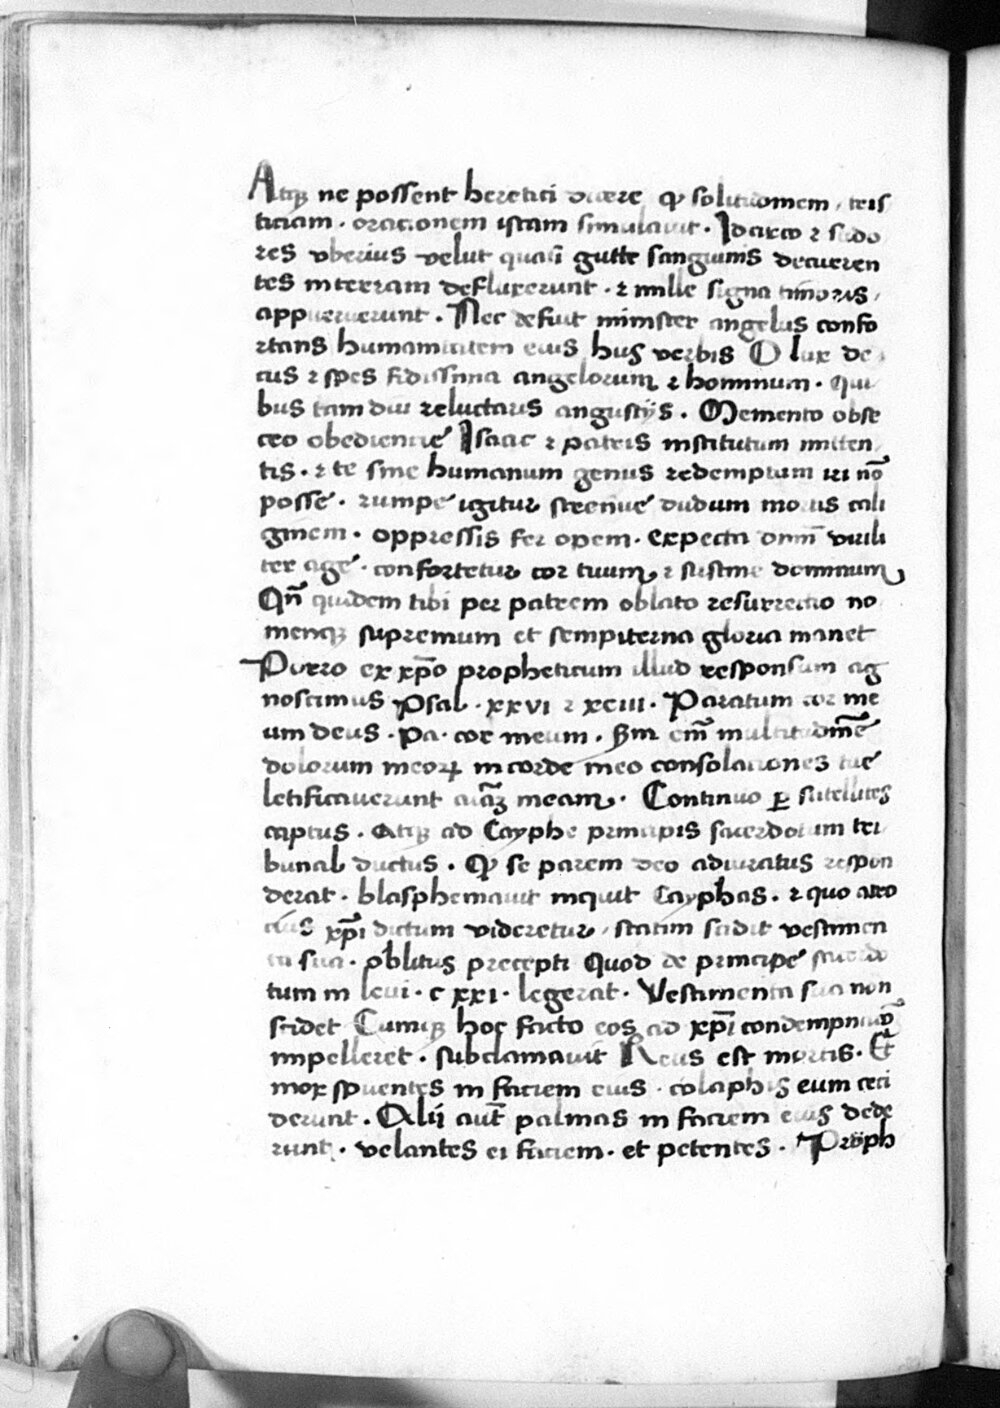 Atqꝫ ne possent heretici dicere ꝙ solitudomem, teis
ticiam · oracionem istam simulauit · Idcirco ⁊ sudo
res vberius velut quasi gutte sanguinis decurren
tes in terram defluxerunt · ⁊ mille signa timoris,
appuerunt · Nec defuit minister angelus confo
rtans humanitatem eius hus verbis O lux de
cus ⁊ spes fidissima angelorum ⁊ hominum · qui
bus tam diu reluctaris angustijs · Memento obse
cro obediencie Isaac ⁊ patris institutum mitten
tis · ⁊ te sine humanum genus redemptum iri nõ
posse · rumpe igitur strenue dudum mortis cali
ginem · oppressis fer opem · expecta dnm̃ virili
ter age · confortetur cor tuum ⁊ sustine dominum
Qñ quidem tibi per patrem oblato resurrectio no
menqꝫ supremum et sempiterna gloria manet
Porro ex xp̃o propheticum illud responsum ag
noscimus Psal · xxvi ⁊ xciii · Paratum cor me
um deus · Pa · cor meum · Sm̃ em̃ multitudinẽ
dolorum meoꝝ in corde meo consolaciones tue
letificauerunt aiãꝫ meam · Continuo ꝑ satellites
captus · Atqꝫ ad Cayphe principis sacerdotum tri
bunal ductus · Qꝫ se parem deo adiuratus respon
derat · blasphemauit inquit Cayphas · ⁊ quo atro
cius xp̃i dictum videretur, statim scidit vestimen
ta sua · oblitus precepti Quod de principe sacerdo
tum in leui · c xxi · legerat · Vestimenta sua non
scidet Cumqꝫ hoc facto eos ad xp̃i condempnacõꝫ
impelleret · subclamauit Reus est mortis · Et
mox spuentes in faciem eius · colaphis eum ceci
derunt · Alij aut̃ palmas in faciem eius dede
runt · velantes ei faciem · et petentes · Proph